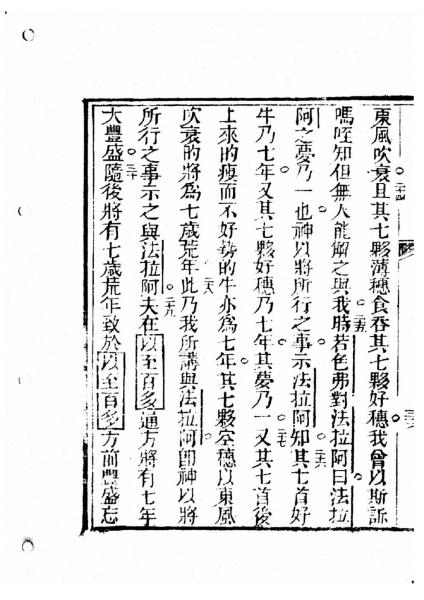 東風吹衰且其七夥薄穗食吞其七夥好穗我曾以斯訴
嗎咥知但無人能解之與我時若色弗對法拉阿曰法拉
阿之夢乃一也神以將所行之事示法拉阿知其七首好
牛乃七年又其七夥好穗乃七年其夢乃一又其七首後
上來的瘦而不好勢的牛亦為七年其七夥空穗以東風
吹衰的將為七歲荒年此乃我所講與法拉阿卽神以將
所行之事示之與法拉阿夫在以至百多通方將有七年
大豐盛隨後將有七歲荒年致於以至百多方前豐盛忘